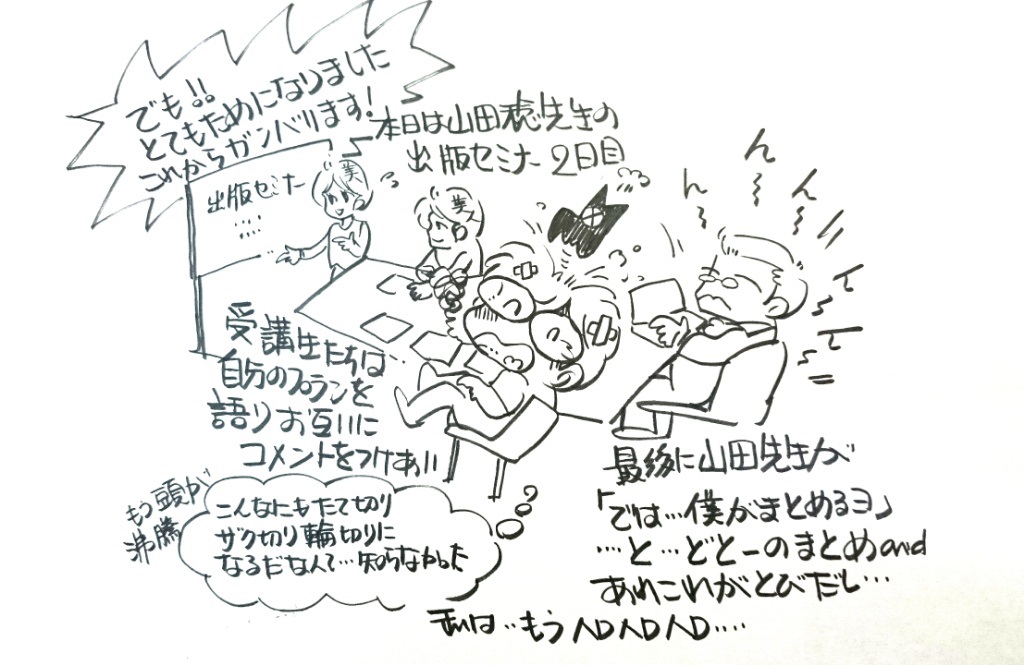 でも!!
とてもためになりました
これからガンバリます!
本日は山田稔先生の
出版セミナー2日目
出版セミナー
美
美人
んんんん
受講生たちは
自分のプランを
語りお互いに
コメントをつけあい
もう頭が
沸騰
こんなにもたて切り
ザク切り輪切りに
なるだなんて…知らなかった
最後に山田先生が
「では…僕がまとめるヨ」
…と…どとーのまとめand
あれこれがとびだし…
私は…もうヘロヘロヘロ….